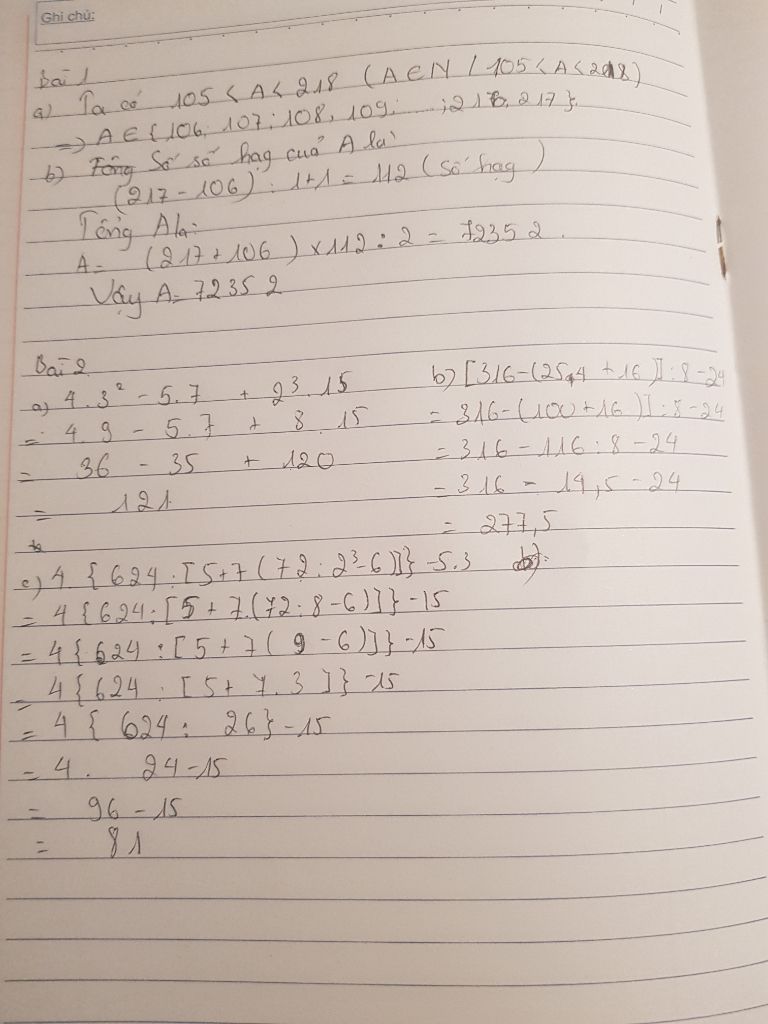 Ghi chú:
Bài 1
a) Ta có 105 < A < 218 (A ∈ N / 105 < A < 218)
=> A ∈ {106; 107; 108, 109; ...; 216, 217}.
b) Số số hạg cuả A là
(217 - 106) : 1+1 = 112 (số hạg)
Tổng A là:
A = (217 + 106) x 112 : 2 = 72352.
Vậy A = 72352
Bài 2
a) 4 . 3² - 5.7 + 2³ . 15
= 4 . 9 - 5 . 7 + 8 . 15
= 36 - 35 + 120
= 121
b) [316-(25.4 + 16)] : 8 - 24
= 316-(100+16)] : 8 - 24
= 316 - 116 : 8 - 24
= 316 - 14,5 - 24
= 277,5
c) 4 {624 : [5+7(72 : 2³-6)]} -5.3
= 4 {624 : [5 + 7.(72 : 8 - 6)]} -15
= 4 {624 : [5 + 7( 9 - 6)]} -15
= 4 {624 : [5 + 7 . 3 ]} -15
= 4 { 624 : 26} - 15
= 4 . 24 - 15
= 96 - 15
= 81